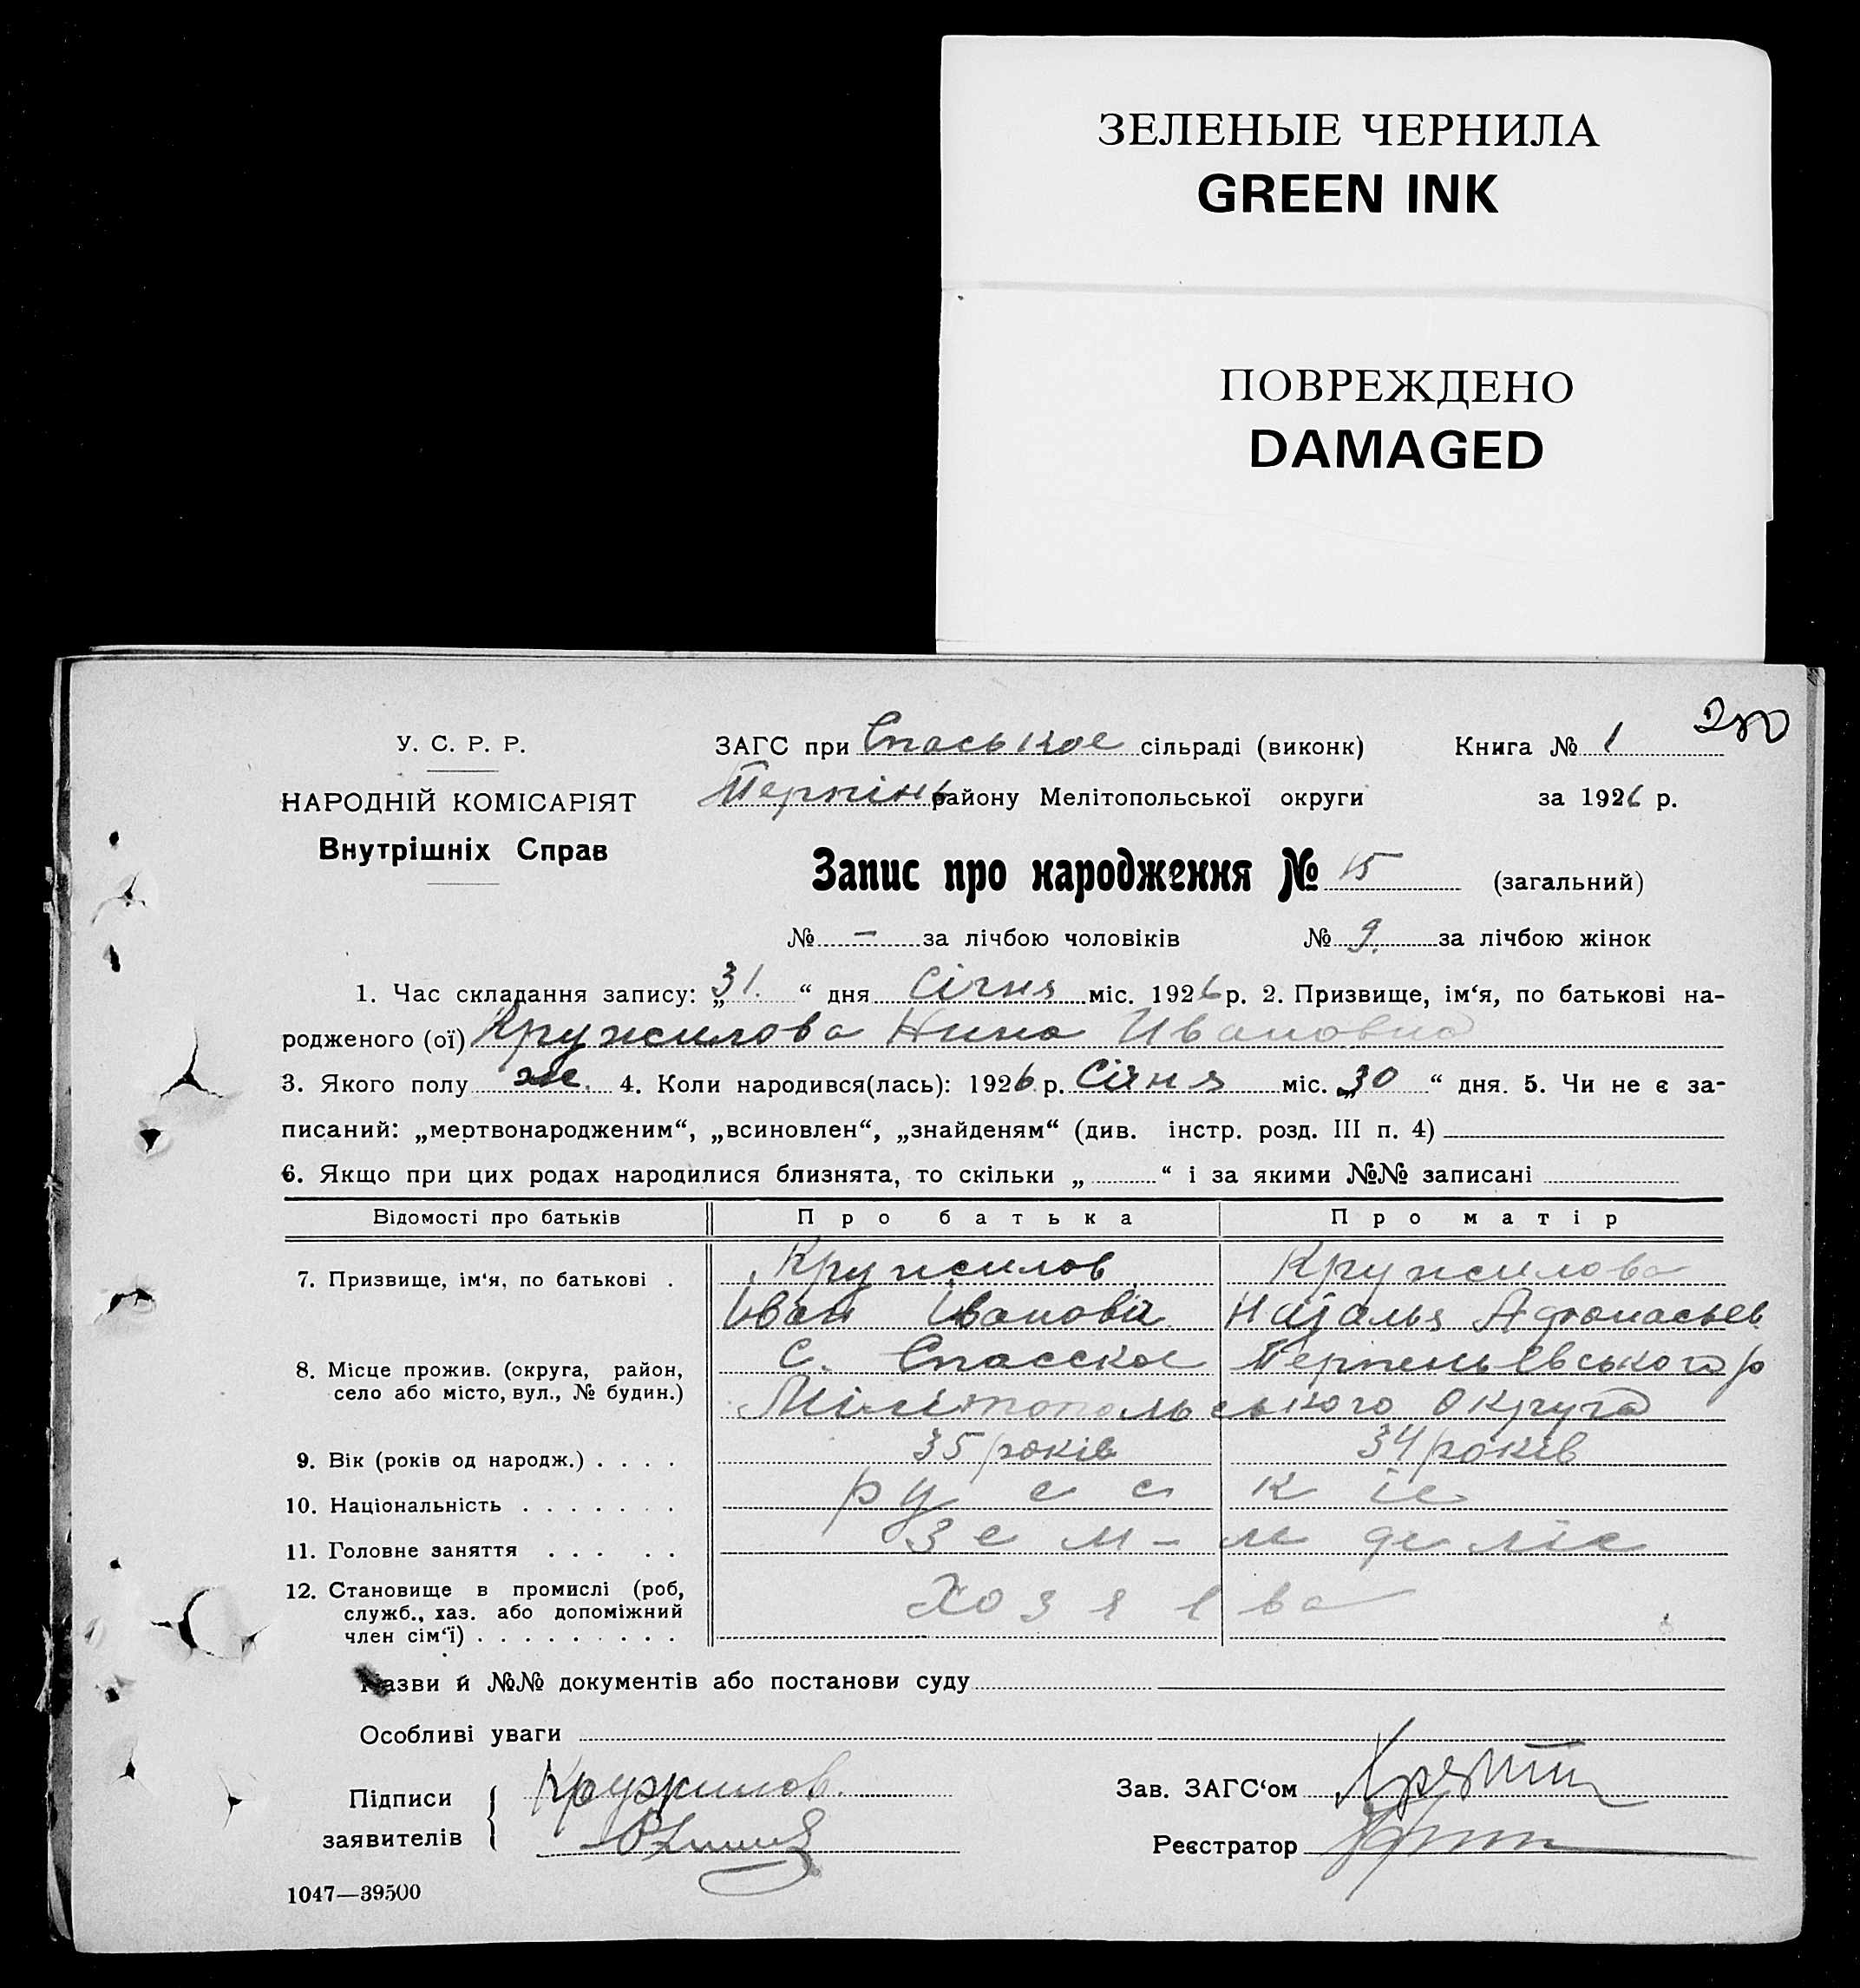 ЗЕЛЕНЫЕ ЧЕРНИЛА
GREEN INK
ПОВРЕЖДЕНО
DAMAGED
У. С. Р. Р.
НАРОДНІЙ КОМІСАРІЯТ
Внутрішніх Справ
ЗАГС при Спаськое сільраді (виконк) Книга № 1
Терпінь району Мелітопольської округи за 1926 р.
Запис про народження № 15 (загальний)
№ — за лічбою чоловіків № 9. за лічбою жінок
1. Час складання запису: „31. “ дня Січня міс. 1926 р. 2. Призвище, ім‘я, по батькові на-
родженого (ої) Кружилова Нина Ивановна
3. Якого полу же. 4. Коли народився(лась): 1926 р. Січня міс. „30 “ дня. 5. Чи не є за-
писаний: „мертвонародженим“, „всиновлен“, „знайденям“ (див. інстр. розд. III п. 4)
6. Якщо при цих родах народилися близнята, то скільки „ “ і за якими №№ записані
Відомості про батьків Про батька Про матір
7. Призвище, ім‘я, по батькові . Кружилов Кружилова
Иван Иванович Наталья Афонасьев
8. Місце прожив. (округа, район, село або місто, вул., № будин.) С. Спасское Терпеньевського р
Мілітопольського Округа
9. Вік (років од народж.) . . . . 35 років 34 років
10. Національність . . . . . . . русскіе
11. Головне заняття . . . . . Зем-ле деліє
12. Становище в промислі (роб, служб., хаз. або допоміжний член сім‘ї) . . . . . . . . . Хозяева
Назви й №№ документів або постанови суду
Особливі уваги
Підписи заявителів Кружилов.
Зав. ЗАГС‘ом
Реєстратор
1047—39500